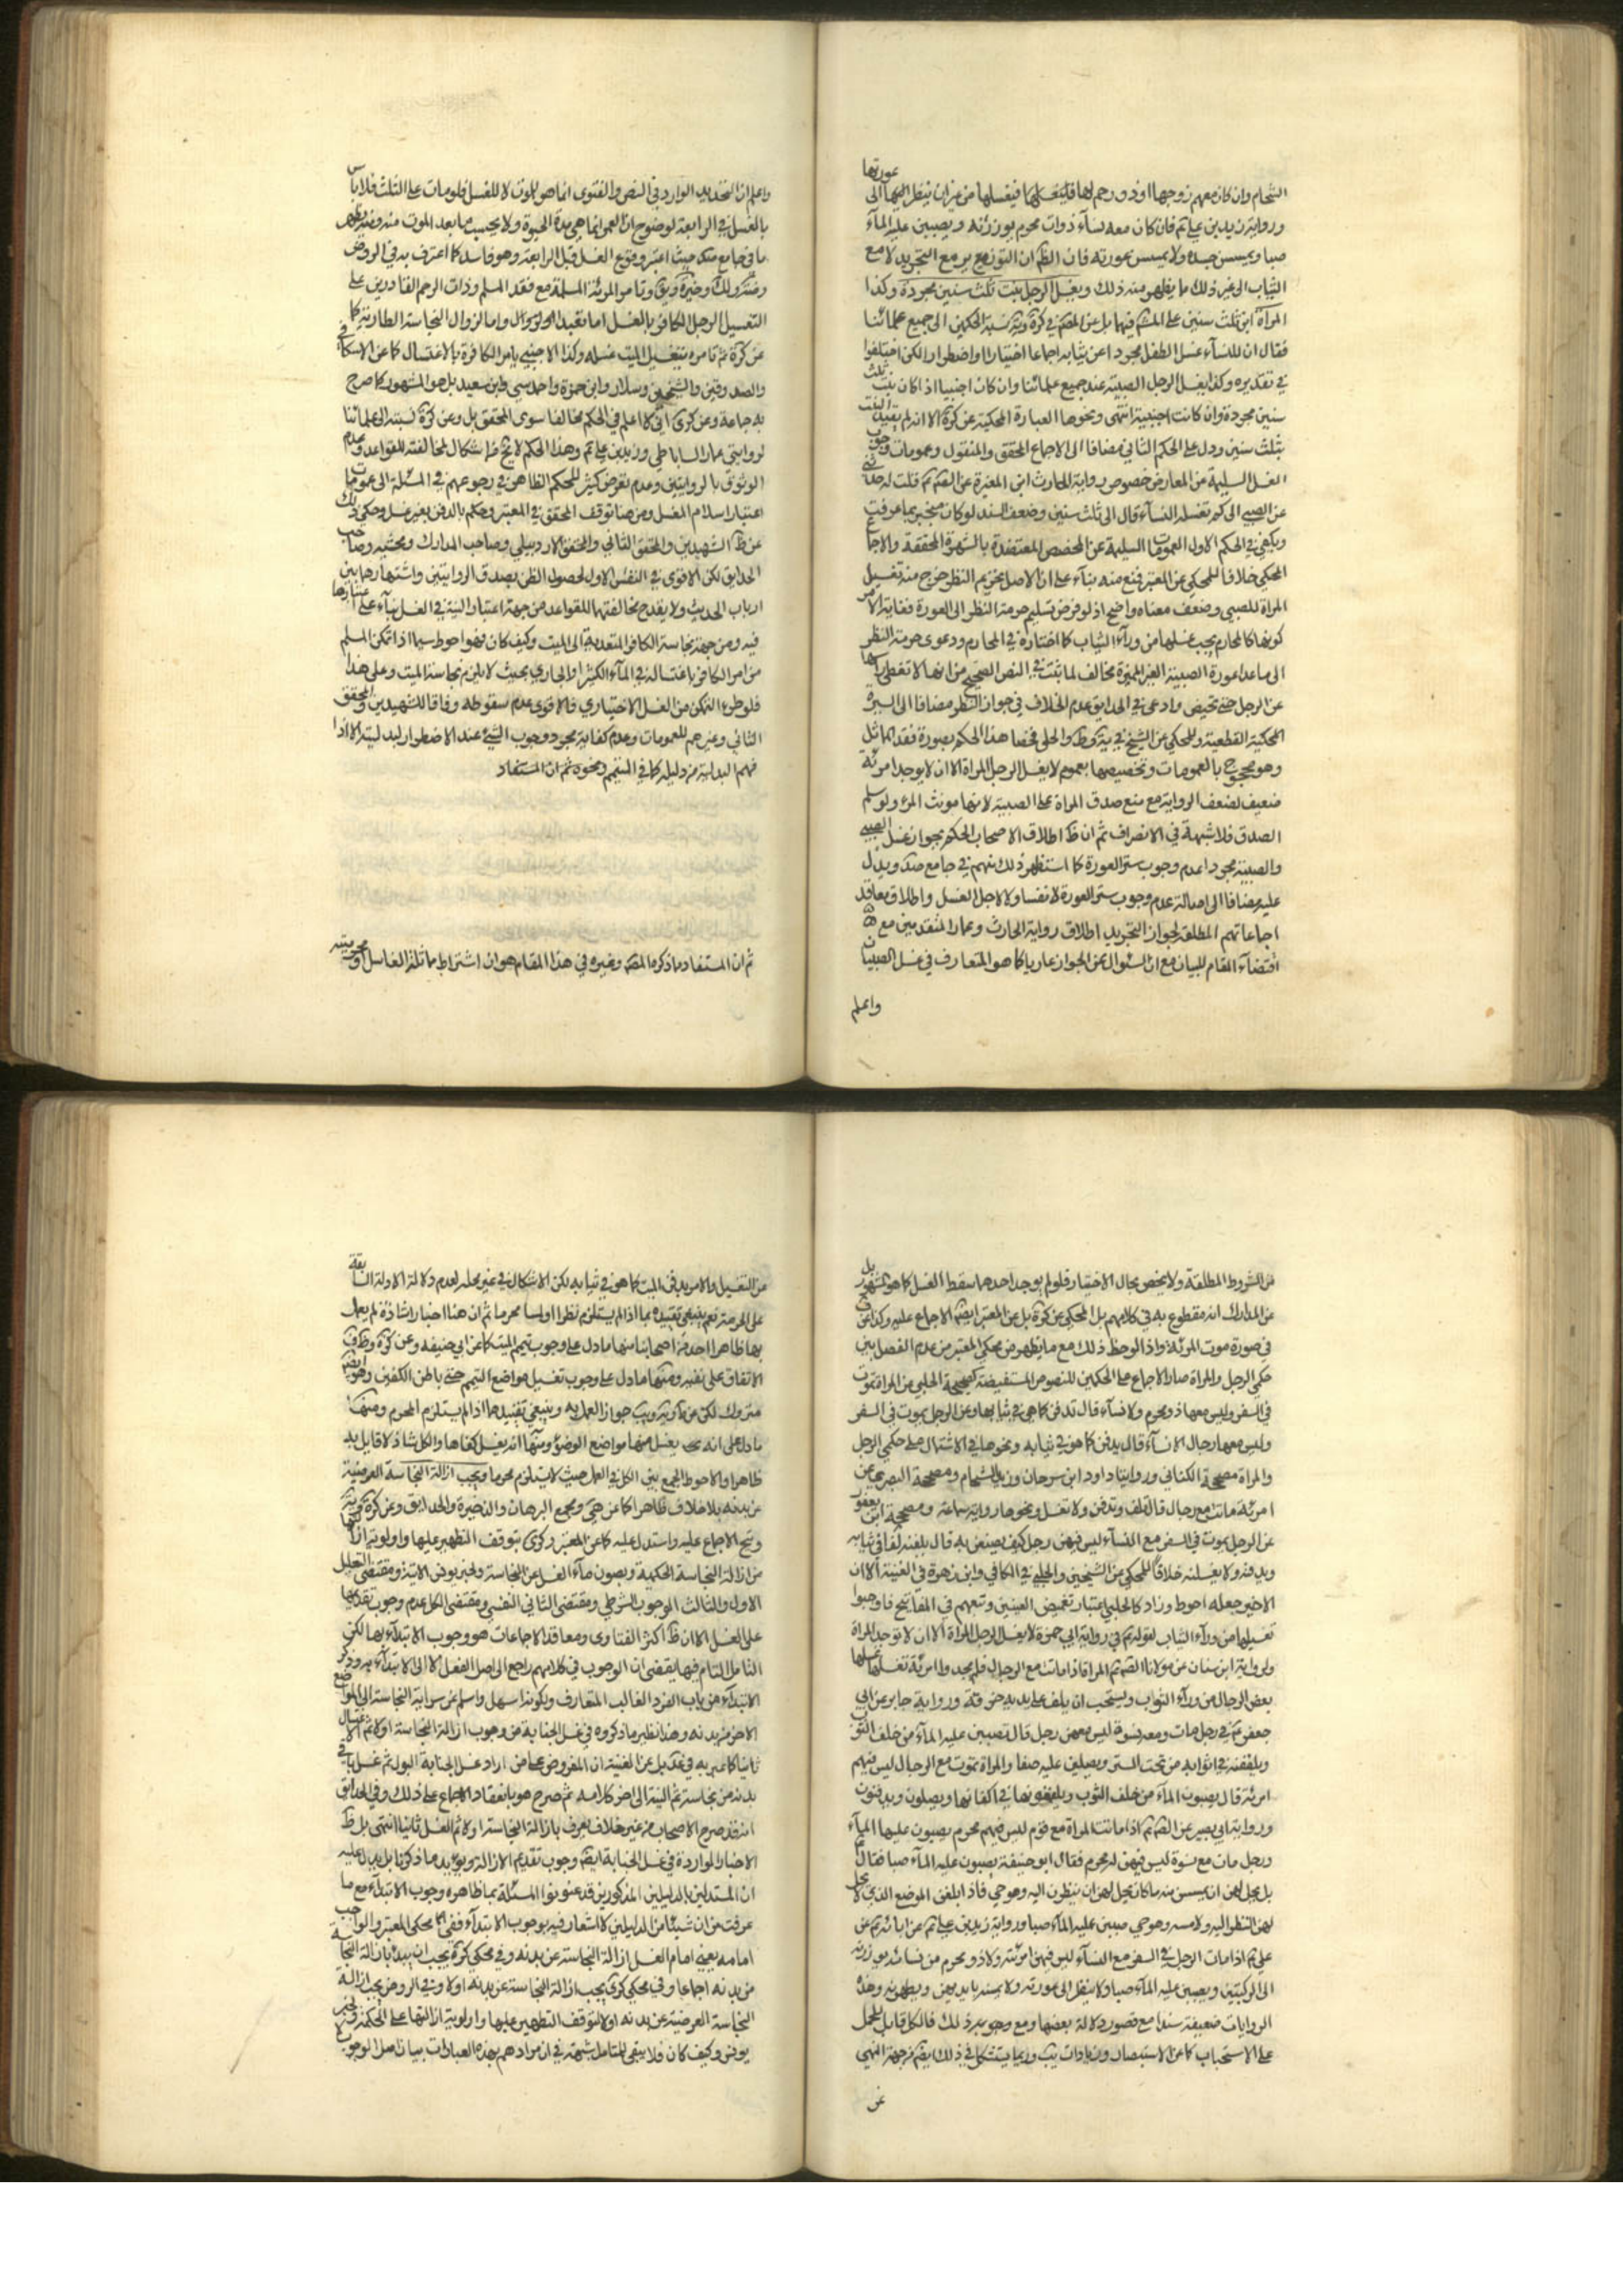 عورتها
الشحام وان كان معهم زوجها او ذو رحم لها فليغسلها من غير ان ينظر الى
ورواية زيد بن علي فان كان معه نساء ذوات محرم يوزرنه ويصببن عليه الماء
صبا ويمسسن جسده ولا يمسسن عورته فان الظم ان التوزيع مع التجريد لا مع
الثياب الى غير ذلك ما يظهر منه ذلك ويغسل الرجل بنت ثلث سنين مجردة وكذا
المرأة ابن ثلث سنين على المشهور فيهما بل عن كرة نسبة الحكمين الى جميع علمائنا
فقال ان للنساء غسل الطفل مجردا عن ثيابه اجماعا اختيارا واضطرارا لكن اختلفوا
في تقديره وكذا يغسل الرجل الصبية عند جميع علمائنا وان كان اجنبيا اذا كان بنت ثلث
سنين مجردة وان كانت اجنبية انتهى ونحوها العبارة المحكية عن كرة الا انه لم يقيد البنت
بثلث سنين ودل على الحكم الثاني مضافا الى الاجماع المحقق والمنقول وعمومات وجوب
الغسل السليمة من المعارض خصوص رواية الحارث ابن المغيرة عن الصم قلت له حدثني
عن الصبي الى كم تغسله النساء قال الى ثلث سنين وضعف السند لو كان منجبر بما عرفت
ويكفي في الحكم الاول العمومات السليمة عن المخصص المعتضدة بالشهرة المحققة والاجماع
المحكي خلافا للمحكي عن المعتبر فمنع منه بناء على ان الاصل تحريم النظر خرج منه تغسيل
المرأة للصبي وضعف معناه واضح اذ لو فرض تسليم حرمة النظر الى العورة فغاية الامر
كونها كالمحارم يجب غسلها من وراء الثياب كما اختاره في المحارم ودعوى حرمة النظر
الى ما عدا عورة الصبية الغير المميزة مخالف لما ثبت في النص الصحيح من انها لا تغطي راسها
عن الرجل حتى تحيض وادعى في الحدايق عدم الخلاف في جواز النظر مضافا الى السيرة
المحكية القطعية وللمحكي عن الشيخ في يه وط والحلي فخصا هذا الحكم بصورة فقد المماثل
وهو محجوج بالعمومات وتخصيصها بعموم لا يغسل الرجل المراة الا ان لا يوجد امرئة
ضعيف لضعف الرواية مع منع صدق المراة على الصبية لانها مونث المرء ولو سلم
الصدق فلا شبهة في الانصراف ثم ان ظ اطلاق الاصحاب الحكم بجواز غسل الصبي
والصبية مجردا عدم وجوب ستر العورة كما استظهر ذلك منهم في جامع صد ويدل
عليه مضافا الى اصالة عدم وجوب ستر العورة لا نفسا ولا لاجل الغسل واطلاق معاقد
اجماعاتهم المطلقة لجواز التجريد اطلاق رواية الحارث وعمار المتقدمين مع
اقتضاء المقام للبيان مع ان السئوال عن الجواز عاريا كما هو المتعارف في غسل الصبيان
واعلم
واعلم ان التحديد الوارد في النص والفتوى انما هو للموت لا للغسل فلو مات على الثلث فلا باس
بالغسل في الرابعة لوضوح ان العمر انما هي مدة الحيوة ولا يحسب ما بعد الموت منه ومنه يظهر
ما في جامع صد حيث اعتبر وقوع الغسل قبل الرابعة وهو فاسد كما اعترف به في الروض
وكذا وغيره ويق وتامر المرئة المسلمة مع فقد المسلم وذات الرحم القادرين على
التغسيل الرجل الكافر بالغسل اما تعبدا واما لزوال النجاسة الطارية كما
عن كرة ثم تامره بتغسيل الميت غسله وكذا الاجنبي يامر الكافرة بالاغتسال كما عن الاسكافي
والصدوقين والشيخين وسلار وابن حمزة واحمد سى وابن سعيد بل هو المشهور كما صرح
به جماعة وعن كرى اني لا اعلم في الحكم مخالفا سوى المحقق بل وعن كرة نسبته الى علمائنا
لروايتي عمار الساباطي وزيد بن علي وهذا الحكم لا يخ من اشكال لمخالفته للقواعد وعدم
الوثوق بالروايتين وعدم تعرض كثير للحكم الظاهر في رجوعهم في المسئلة الى عمومات
اعتبار اسلام المغسل ومن هنا توقف المحقق في المعتبر وحكم بالدفن بغير غسل وحكي ذلك
عن ظ الشهيدين والمحقق الثاني والمحقق الاردبيلي وصاحب المدارك ومحشيه وصاحب
الحدايق لكن الاقوى في النفس الاول لحصول الظن بصدق الروايتين واشتهارهما بين
ارباب الحديث ولا يقدح مخالفتهما للقواعد من جهة اعتبار النية في الغسل بناء على اعتبارها
فيه ومن جهة نجاسة الكافر المتعدية الى الميت وكيف كان فهو احوط سيما اذا تمكن المسلم
من امر الكافر باغتساله في الماء الكثير او الجاري بحيث لا يلزم نجاسة الميت وعلى هذا
فلو طرء التمكن من الغسل الاختياري فالاقوى عدم سقوطه وفاقا للشهيدين والمحقق
الثاني وغيرهم للعمومات وعدم كفاية مجرد وجوب الشيء عند الاضطرار لبدليته الا اذا
فهم البدلية من دليله كما في التيمم ونحوه ثم ان المستفاد
ثم ان المستفاد مما ذكره المص وغيره في هذا المقام هو ان اشتراط مماثلة الغاسل او محرميته
من الشروط المطلقة ولا يختص بحال الاختيار فلو لم يوجد احدهما سقط الغسل كما هو المشهور بل
عن المدارك انه مقطوع به في كلامهم بل المحكي عن كرة بل عن المعتبر ايضا الاجماع عليه وكذا عن ف
في صورة موت المرئة واذا لوحظ ذلك مع ما يظهر من محكي المعتبر من عدم الفصل بين
حكمي الرجل والمراة صار الاجماع على الحكمين للنصوص المستفيضة كصحيحة الحلبي عن المراة تموت
في السفر وليس معها ذو محرم ولا نساء قال تدفن كما هي في ثيابها وعن الرجل يموت في السفر
وليس معها رجال الا نساء قال يدفن كما هو في ثيابه ونحوها في الاشتمال على حكمي الرجل
والمراة مصححة الكناني وروايتا داود ابن سرحان وزيد الشحام ومصححة البصري عن
امرئة ماتت مع رجال قال تلف وتدفن ولا تغسل ونحوها رواية سماعة ومصححة ابن يعفور
عن الرجل يموت في السفر مع النساء ليس فيهن رجل كيف يصنعن به قال يلففنه لفا في ثيابه
ويدفنه ولا يغسلنه خلافا للمحكي عن الشيخين والحلبي في الكافي وابن زهرة في الغنية الا ان
الاخير جعله احوط وزاد كالحلبي اعتبار تغميض العينين وتبعهم في المفاتيح فاوجبوا
تغسيلها من وراء الثياب لقوله في رواية ابي حمزة لا يغسل الرجل المراة الا ان لا توجد امراة
ولرواية ابن سنان عن مولانا الصم المراة اذا ماتت مع الرجال فلم يجدوا امرئة تغسلها غسلها
بعض الرجال من وراء الثوب ويستحب ان يلف على يديه خرقة ورواية جابر عن ابي
جعفر في رجل مات ومعه نسوة ليس معهن رجل قال تصببن عليه الماء من خلف الثوب
ويلففنه في اثوابه من تحت الستر ويصلين عليه صفا والمراة تموت مع الرجال ليس فيهم
امرئة قال يصبون الماء من خلف الثوب ويلفونها في اكفانها ويصلون ويدفنون
ورواية ابي بصير عن الصم اذا ماتت المراة مع قوم ليس فيهم محرم يصبون عليها الماء
ورجل مات مع نسوة ليس فيهن له محرم فقال ابو حنيفة يصبون عليه الماء صبا فقال
بل يحل لهن ان يمسسن منه ما كان يحل لهن ان ينظرن اليه وهو حي فاذا بلغن الموضع الذي لا يحل
لهن النظر اليه ولا مسه وهو حي صببن عليه الماء صبا ورواية زيد بن علي عن ابائه عن
علي اذا مات الرجل في السفر مع النساء ليس فيهن امرئته ولا ذو محرم من نسائه يوزرنه
الى الركبتين ويصببن عليه الماء صبا ولا ينظرن الى عورته ولا يمسنه بايديهن ويطهرنه وهذه
الروايات ضعيفة سندا مع قصور دلالة بعضها ومع وجوبه ذلك فالكل قابل للحمل
على الاستحباب كما عن الاستبصار وزيادات يب وربما يستشكل في ذلك ايضا من جهة النهي
عن
من التغسيل والامر بدفن الميت كما هو في ثيابه لكن الاشكال في غير محله لعدم دلالة الادلة السابقة
على الحرمة نعم ينبغي تقييده بما اذا لم يستلزم نظرا او لمسا محرما ثم ان هنا اخبارا شاذة لم يعمل
بها ظاهرا احد من اصحابنا منها ما دل على وجوب تيمم الميت كما عن ابي حنيفه وعن كرة وظ ف
الاتفاق على نفيه ومنها ما دل على وجوب تغسيل مواضع التيمم حتى باطن الكفين وهو ايضا
متروك لكن عن جواز العمل به وينبغي تقييدها اذا لم يستلزم المحرم ومنها
ما دل على انه يغسل منها مواضع الوضوء ومنها انه يغسل كفاها والكل شاذ لا قايل به
ظاهرا والاحوط الجمع بين الكل في العمل حيث لا يستلزم محرما ويجب ازالة النجاسة العرضية
عن بدنه بلا خلاف ظاهرا كما عن هى ومجمع البرهان والذخيرة والحدايق وعن كرة
الاجماع عليه واستدل عليه كما عن المعتبر وكرى بتوقف التطهير عليها واولوية ازالتها
من ازالة النجاسة الحكمية وبصون ماء الغسل عن النجاسة ولخبر يونس الاتية ومقتضى التعليل
الاول والثالث الوجوب الشرطي ومقتضى الثاني النفسي ومقتضى الكل عدم وجوب تقديمها
على الغسل الا ان ظ اكثر الفتاوى ومعاقد الاجماعات هو وجوب الابتداء بها لكن
التامل التام فيها يقضي ان الوجوب في كلامهم راجع الى اصل الفعل لا الى الابتداء به وذكر
الابتداء من باب الفرد الغالب المتعارف ولكونه اسهل واسلم عن سراية النجاسة الى المواضع
الاخر من بدنه وهذا نظير ما ذكروه في غسل الجنابة من وجوب ازالة النجاسة اولا ثم الاغتسال
ثانيا كما عبر به في عد بل عن الغنية ان المفروض على من اراد غسل الجنابة البول ثم غسل ما في
بدنه من نجاسة ثم النية الى اخر كلامه ثم صرح هو بانعقاد الاجماع على ذلك وفي الحدايق
انه قد صرح الاصحاب من غير خلاف يعرف بازالة النجاسة اولا ثم الغسل ثانيا انتهى بل ظ
الاخبار الواردة في غسل الجنابة ايضا وجوب تقديم الازالة ويؤيد ما ذكرنا بل يدل عليه
ان المستدلين بالدليلين المذكورين قد عنونوا المسئلة بما ظاهره وجوب الابتداء مع ما
عرفت من ان شيئا من الدليلين لا اشعار فيه بوجوب الابتداء ففي محكي المعتبر والواجب
امامه يعني امام الغسل ازالة النجاسة عن بدنه وفي محكي كرة يجب ان يبدء بازالة النجاسة
من بدنه اجماعا وفي محكي كرى يجب ازالة النجاسة عن بدنه اولا وفي الروض يجب ازالة
النجاسة العرضية عن بدنه اولا لتوقف التطهير عليها واولوية ازالتها على الحكمية ولخبر
يونس وكيف كان فلا ينبغي للمتامل شبهة في ان مرادهم بهذه العبارات بيان اصل الوجوب